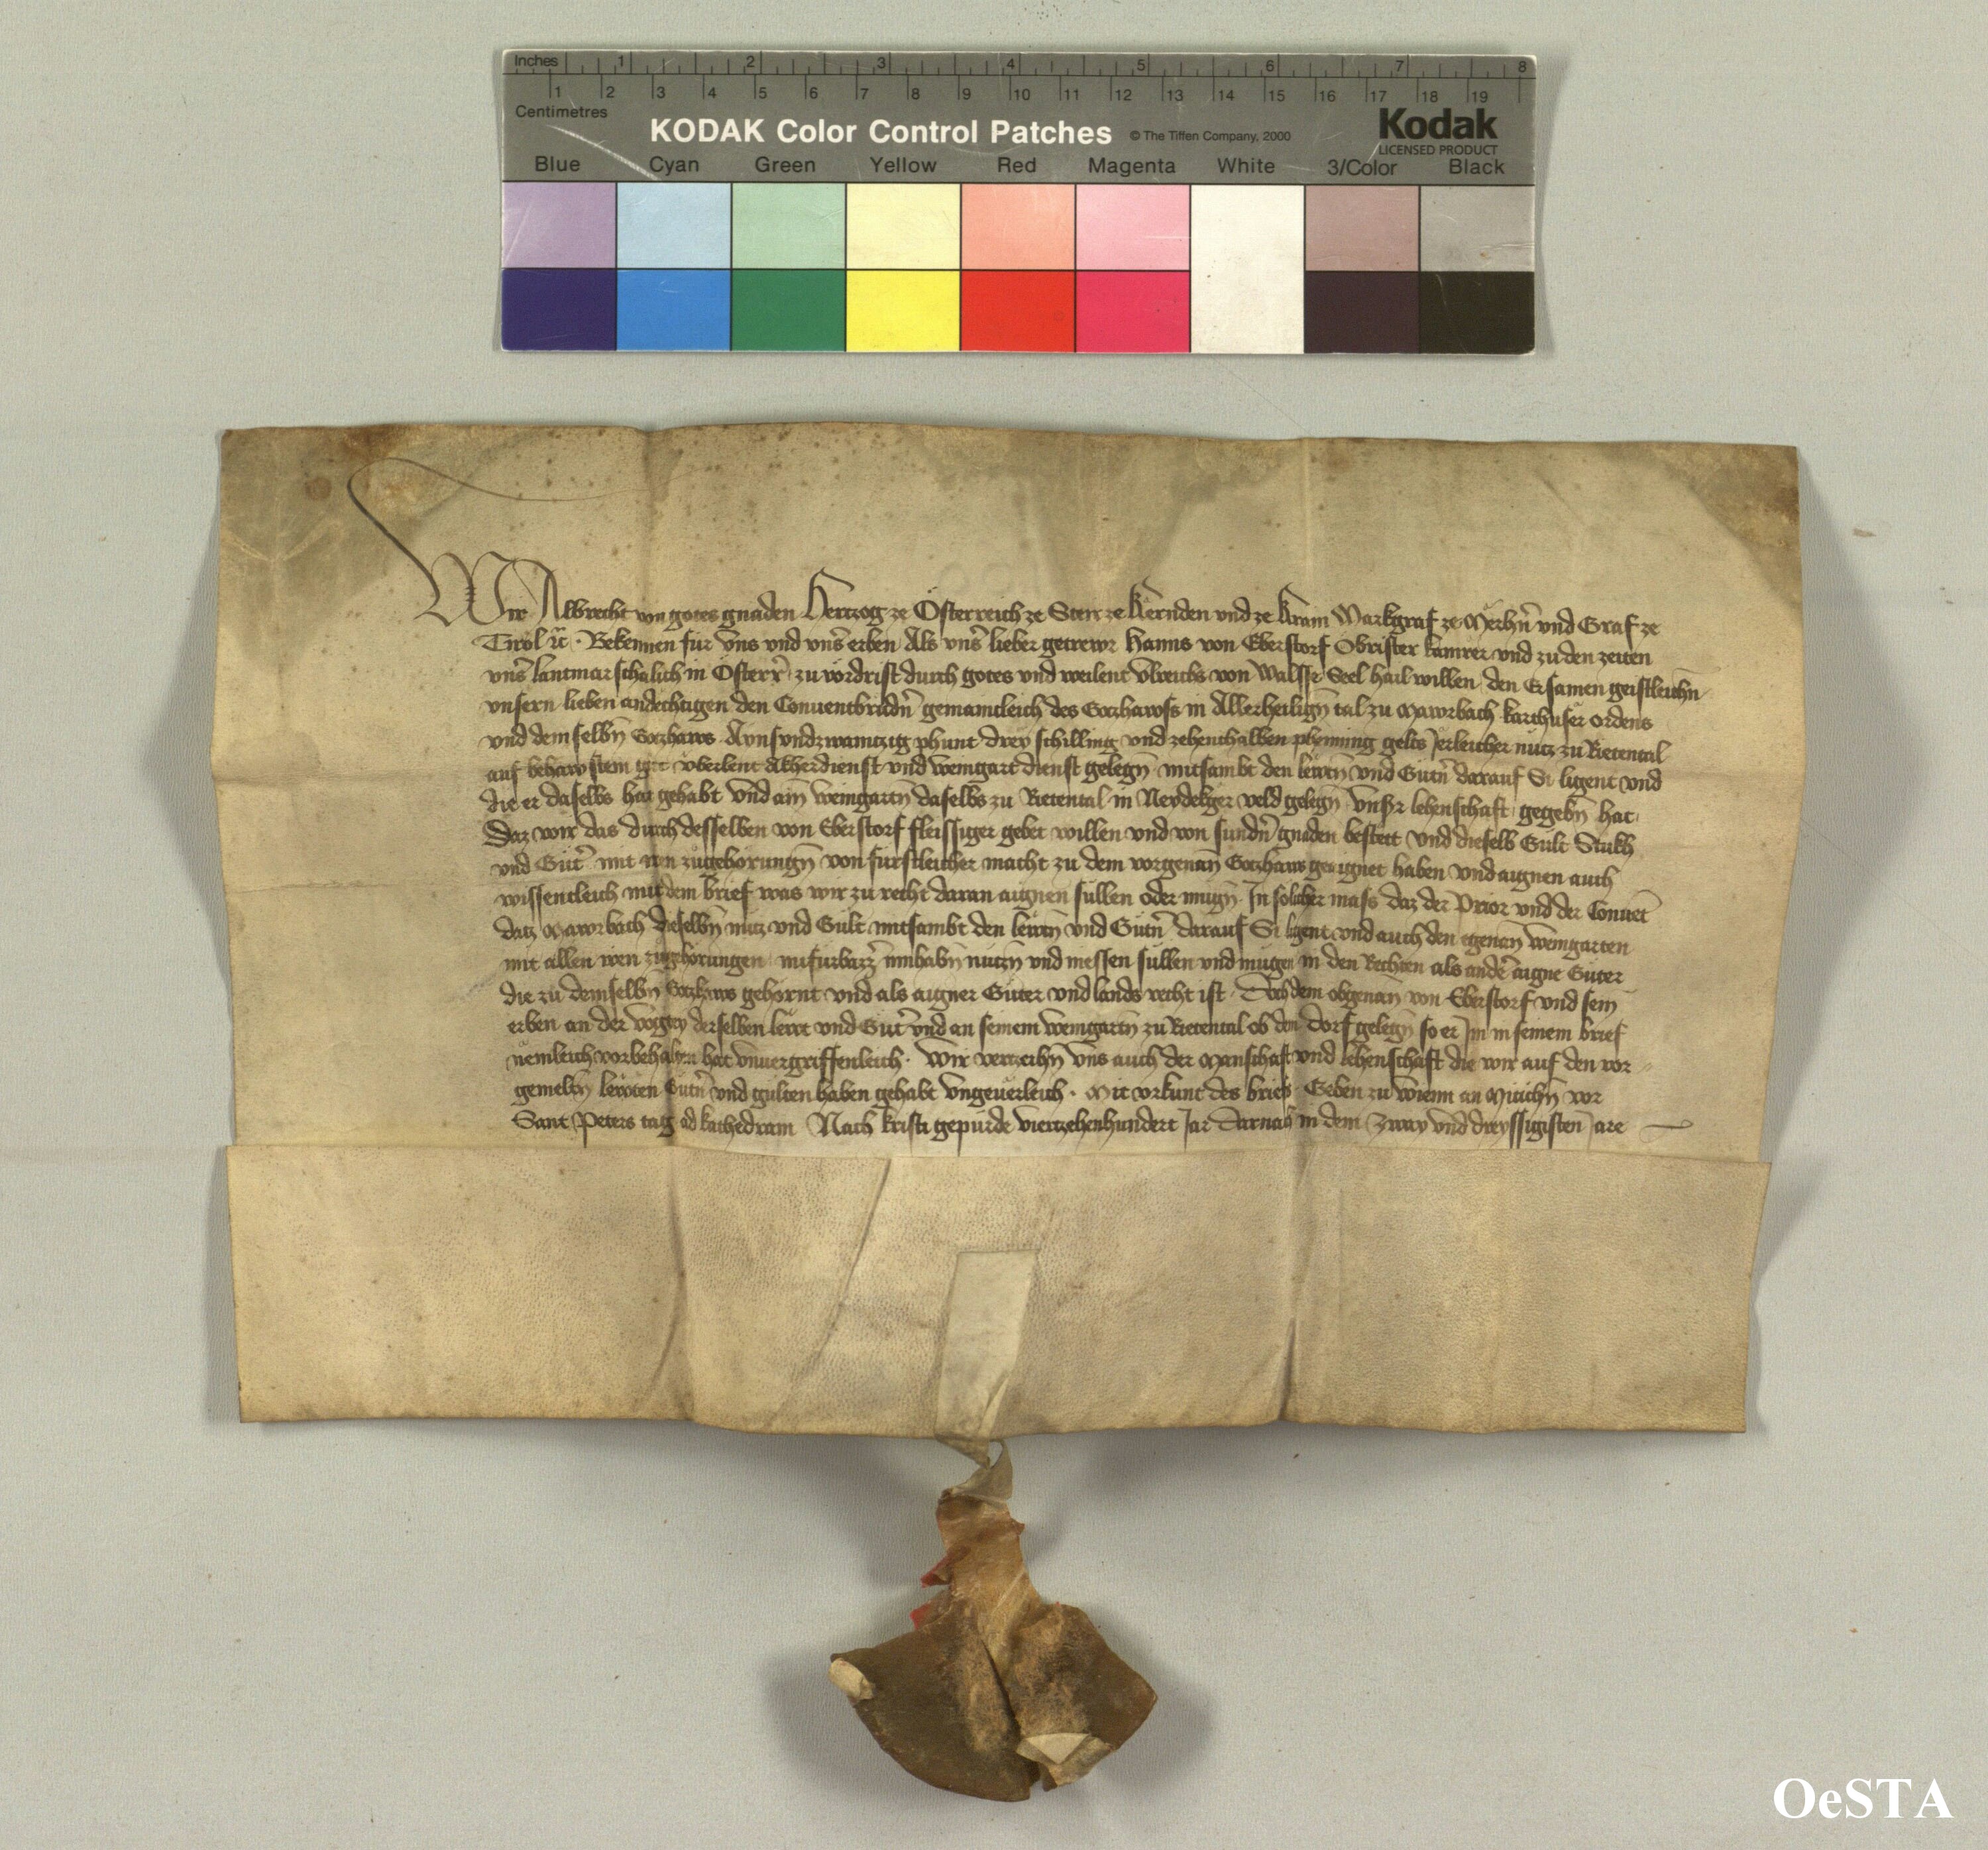 Inches 1 2 3 4 5 6 7 8
1 2 3 4 5 6 7 8 9 10 11 12 13 14 15 16 17 18 19
Centimetres
KODAK Color Control Patches © The Tiffen Company, 2000 Kodak
LICENSED PRODUCT
Blue Cyan Green Yellow Red Magenta White 3/Color Black
Wir Albrecht von gotes gnaden Hertzog ze Österreich ze Steir ze Kernden vnd ze Krain Markgraf ze Merhn̄ vnd Graf ze
Tirol ꝛc. Bekennen für vns vnd vnser̄ erben Als vnser̄ lieber getrewr Hanns von Eberstorf Obrister kamrer vnd zu den zeiten
vnser̄ lantmarschalich in Österr̄ zu vördrist durch gotes vnd weilent Vlreichs von Walsse Seel hail willen den Ersamen geistleichn̄
vnsern lieben andechtigen den Conuentbrüdn̄ gemaincleich des Gotzhawss in Allerheilign̄ tal zu Mawrbach karthuser ordens
vnd demselbn̄ Gotzhaws Aynsvndzwaintzig phunt drey schilling vnd zehenthalben phenning gelts Jerleicher nütz zu Rietental
auf behawstem gut vberlent Akherdienst vnd weingart dienst gelegn̄ mitsambt den lewtn̄ vnd Gütn̄ darauf Si ligent vnd
die er daselbs hat gehabt vnd ain weingartn daselbs zu Rietental in Neydekger veld gelegn̄ vnsrr lehenschaft gegebn̄ hat
Daz wir das durch desselben von Eberstorf fleissiger gebet willen vnd von sundn̄ gnaden bestett vnd dieselb Gült Stukh
vnd Güt̄ mit irn zugehorungn̄ von fürstleicher macht zu dem vorgenan̄ Gotzhaws geaignet haben vnd aignen auch
wissentleich mit dem brief was wir zu recht daran aignen süllen oder mugn̄ In solcher mass daz der Prior vnd der Conuet̄
datz Mawrbach dieselbn̄ nutz vnd Gült mitsambt den lewtn̄ vnd Gütn̄ darauf Si ligent vnd auch den egenan̄ weingarten
mit allen iren zugehorungen nufurbazz̄ innhabn̄ nutzn̄ vnd niessen süllen vnd mugen in den Rechten als ander̄ aigne Güter
die zu demselbn̄ Gotzhaws gehornt vnd als aigner Güter vnd lands recht ist. Doch dem obgenan̄ von Eberstorf vnd sein
erben an der vogtey derselben lewt vnd Güt̄ vnd an seinem weingartn̄ zu Rietental ob dem dorf gelegn̄ so er Im in seinem brief
nemleich vorbehabn hat vnuergriffenleich. Wir verzeihn̄ vns auch der Manschaft vnd lehenschaft die wir auf den vor
gemeltn̄ lewten Gütn̄ vnd gülten haben gehabt vngeuerleich. Mit vrkunt des briefs Geben zu Wienn an Mitichn̄ vor
Sant Peters tag ad kathedram Nach kristi gepürde viertzehenhundert Jar Darnach in dem Zway vnd dreyssigisten Jare
OeSTA